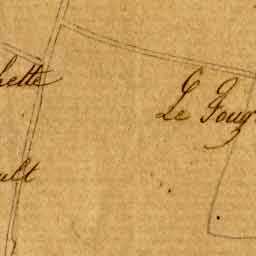 hette
Le Foug
ult